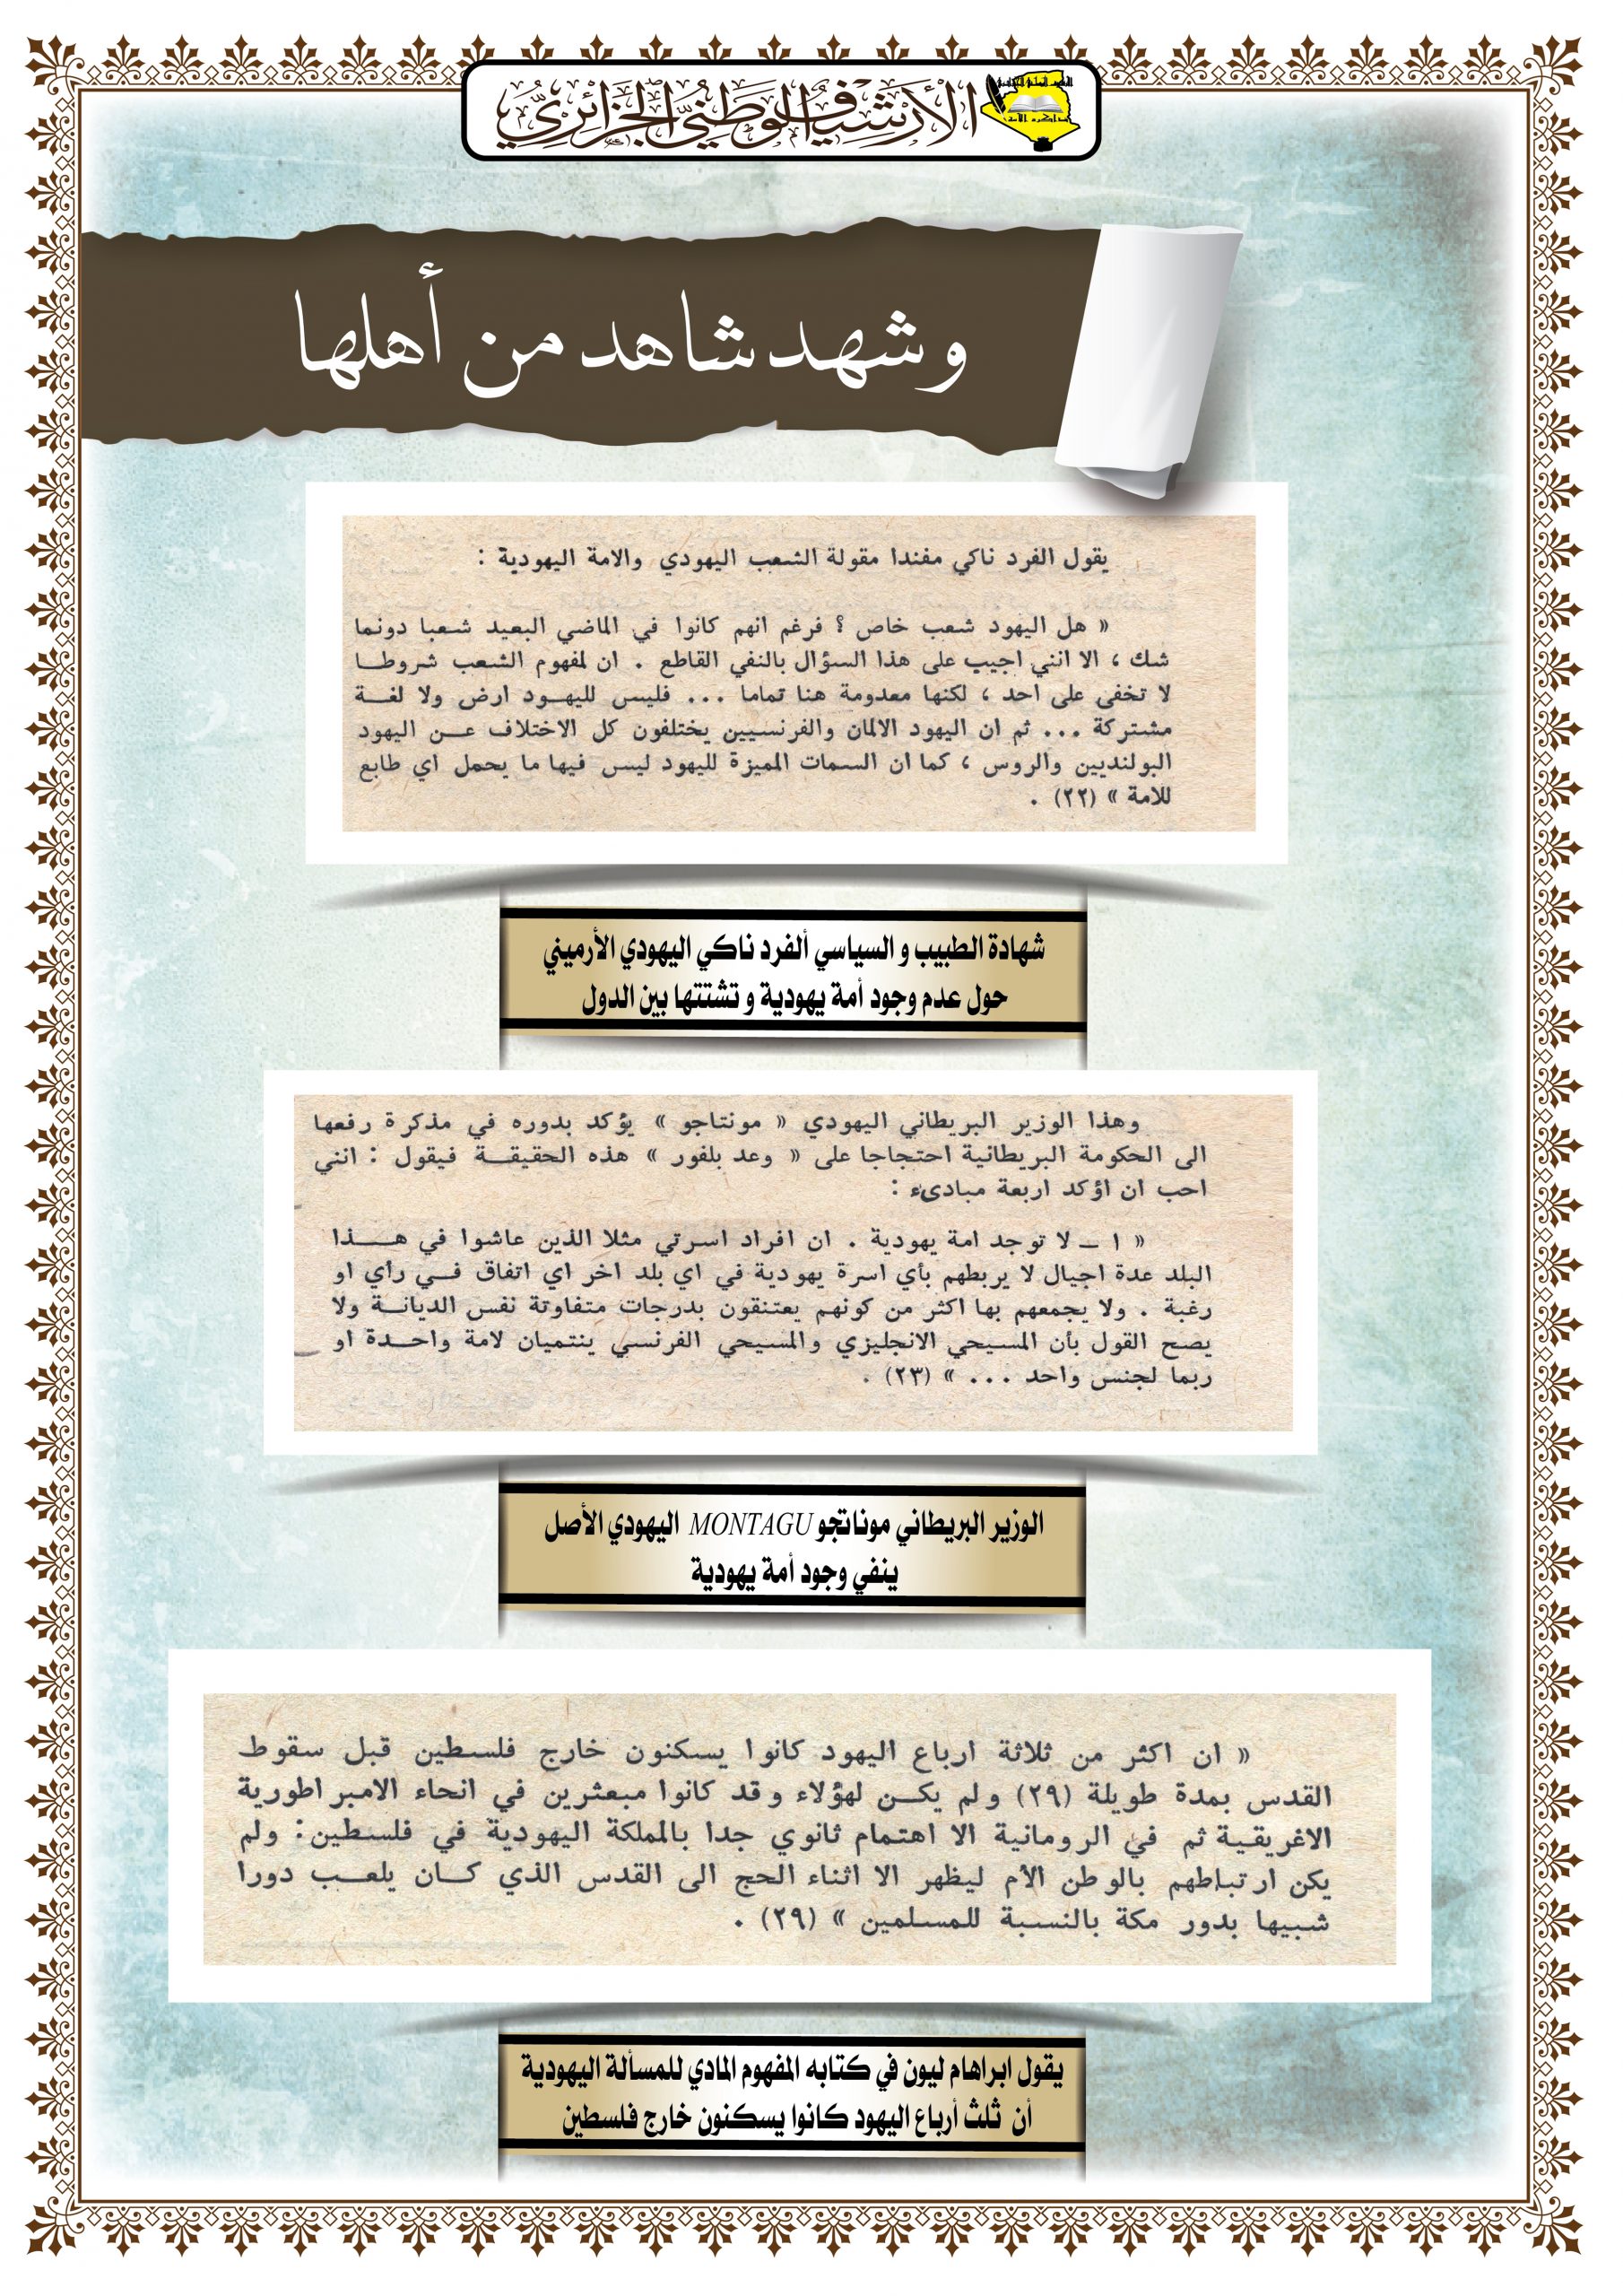 الأرشيف الوطني الجزائري
وشهد شاهد من أهلها
يقول الفرد ناكي مفندا مقولة الشعب اليهودي والامة اليهودية :
« هل اليهود شعب خاص ؟ فرغم انهم كانوا في الماضي البعيد شعبا دونما
شك ، الا انني اجيب على هذا السؤال بالنفي القاطع . ان لمفهوم الشعب شروطا
لا تخفى على احد ، لكنها معدومة هنا تماما ... فليس لليهود ارض ولا لغة
مشتركة ... ثم ان اليهود الالمان والفرنسيين يختلفون كل الاختلاف عن اليهود
البولنديين والروس ، كما ان السمات المميزة لليهود ليس فيها ما يحمل اي طابع
للامة » (٢٢) .
شهادة الطبيب و السياسي ألفرد ناكي اليهودي الأرميني
حول عدم وجود أمة يهودية و تشتتها بين الدول
وهذا الوزير البريطاني اليهودي « مونتاجو » يؤكد بدوره في مذكرة رفعها
الى الحكومة البريطانية احتجاجا على « وعد بلفور » هذه الحقيقة فيقول : انني
احب ان اؤكد اربعة مبادىء :
« ١ ـ لا توجد امة يهودية . ان افراد اسرتي مثلا الذين عاشوا في هذا
البلد عدة اجيال لا يربطهم بأي اسرة يهودية في اي بلد اخر اي اتفاق في رأي او
رغبة . ولا يجمعهم بها اكثر من كونهم يعتنقون بدرجات متفاوتة نفس الديانة ولا
يصح القول بأن المسيحي الانجليزي والمسيحي الفرنسي ينتميان لامة واحدة او
ربما لجنس واحد ... » (٢٣) .
الوزير البريطاني موناتجو MONTAGU اليهودي الأصل
ينفي وجود أمة يهودية
« ان اكثر من ثلاثة ارباع اليهود كانوا يسكنون خارج فلسطين قبل سقوط
القدس بمدة طويلة (٢٩) ولم يكن لهؤلاء وقد كانوا مبعثرين في انحاء الامبراطورية
الاغريقية ثم في الرومانية الا اهتمام ثانوي جدا بالمملكة اليهودية في فلسطين : ولم
يكن ارتباطهم بالوطن الأم ليظهر الا اثناء الحج الى القدس الذي كان يلعب دورا
شبيها بدور مكة بالنسبة للمسلمين » (٢٩) .
يقول ابراهام ليون في كتابه المفهوم المادي للمسألة اليهودية
أن ثلث أرباع اليهود كانوا يسكنون خارج فلسطين